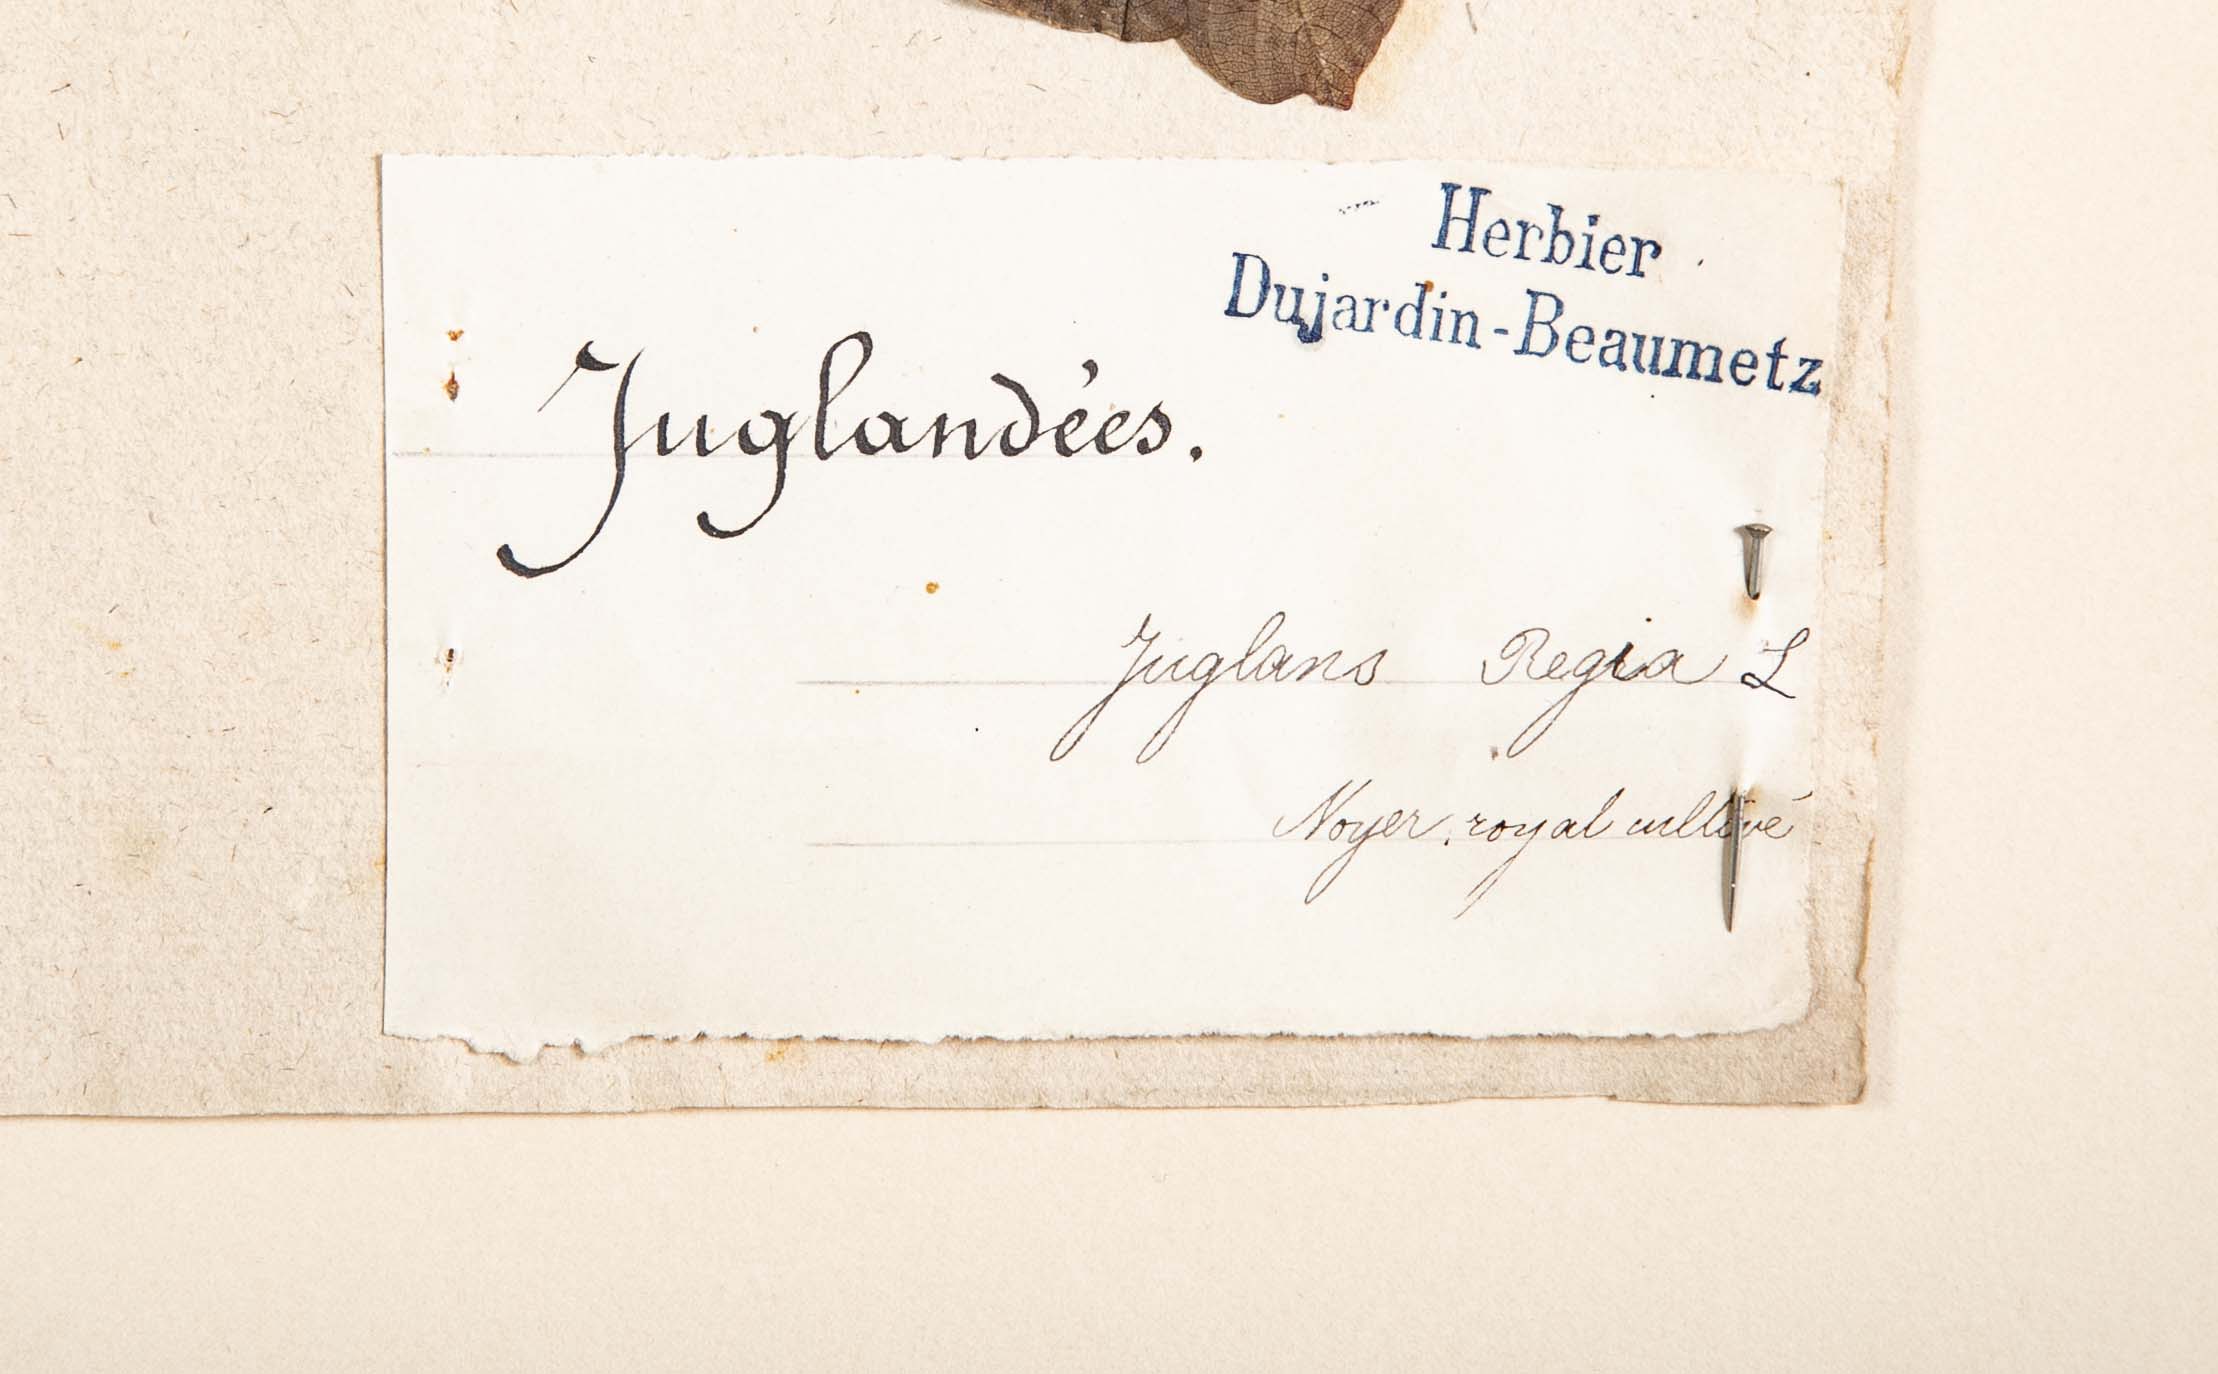 Herbier
Dujardin-Beaumetz
Juglandées.
Juglans Regia L
Noyer royal cultivé